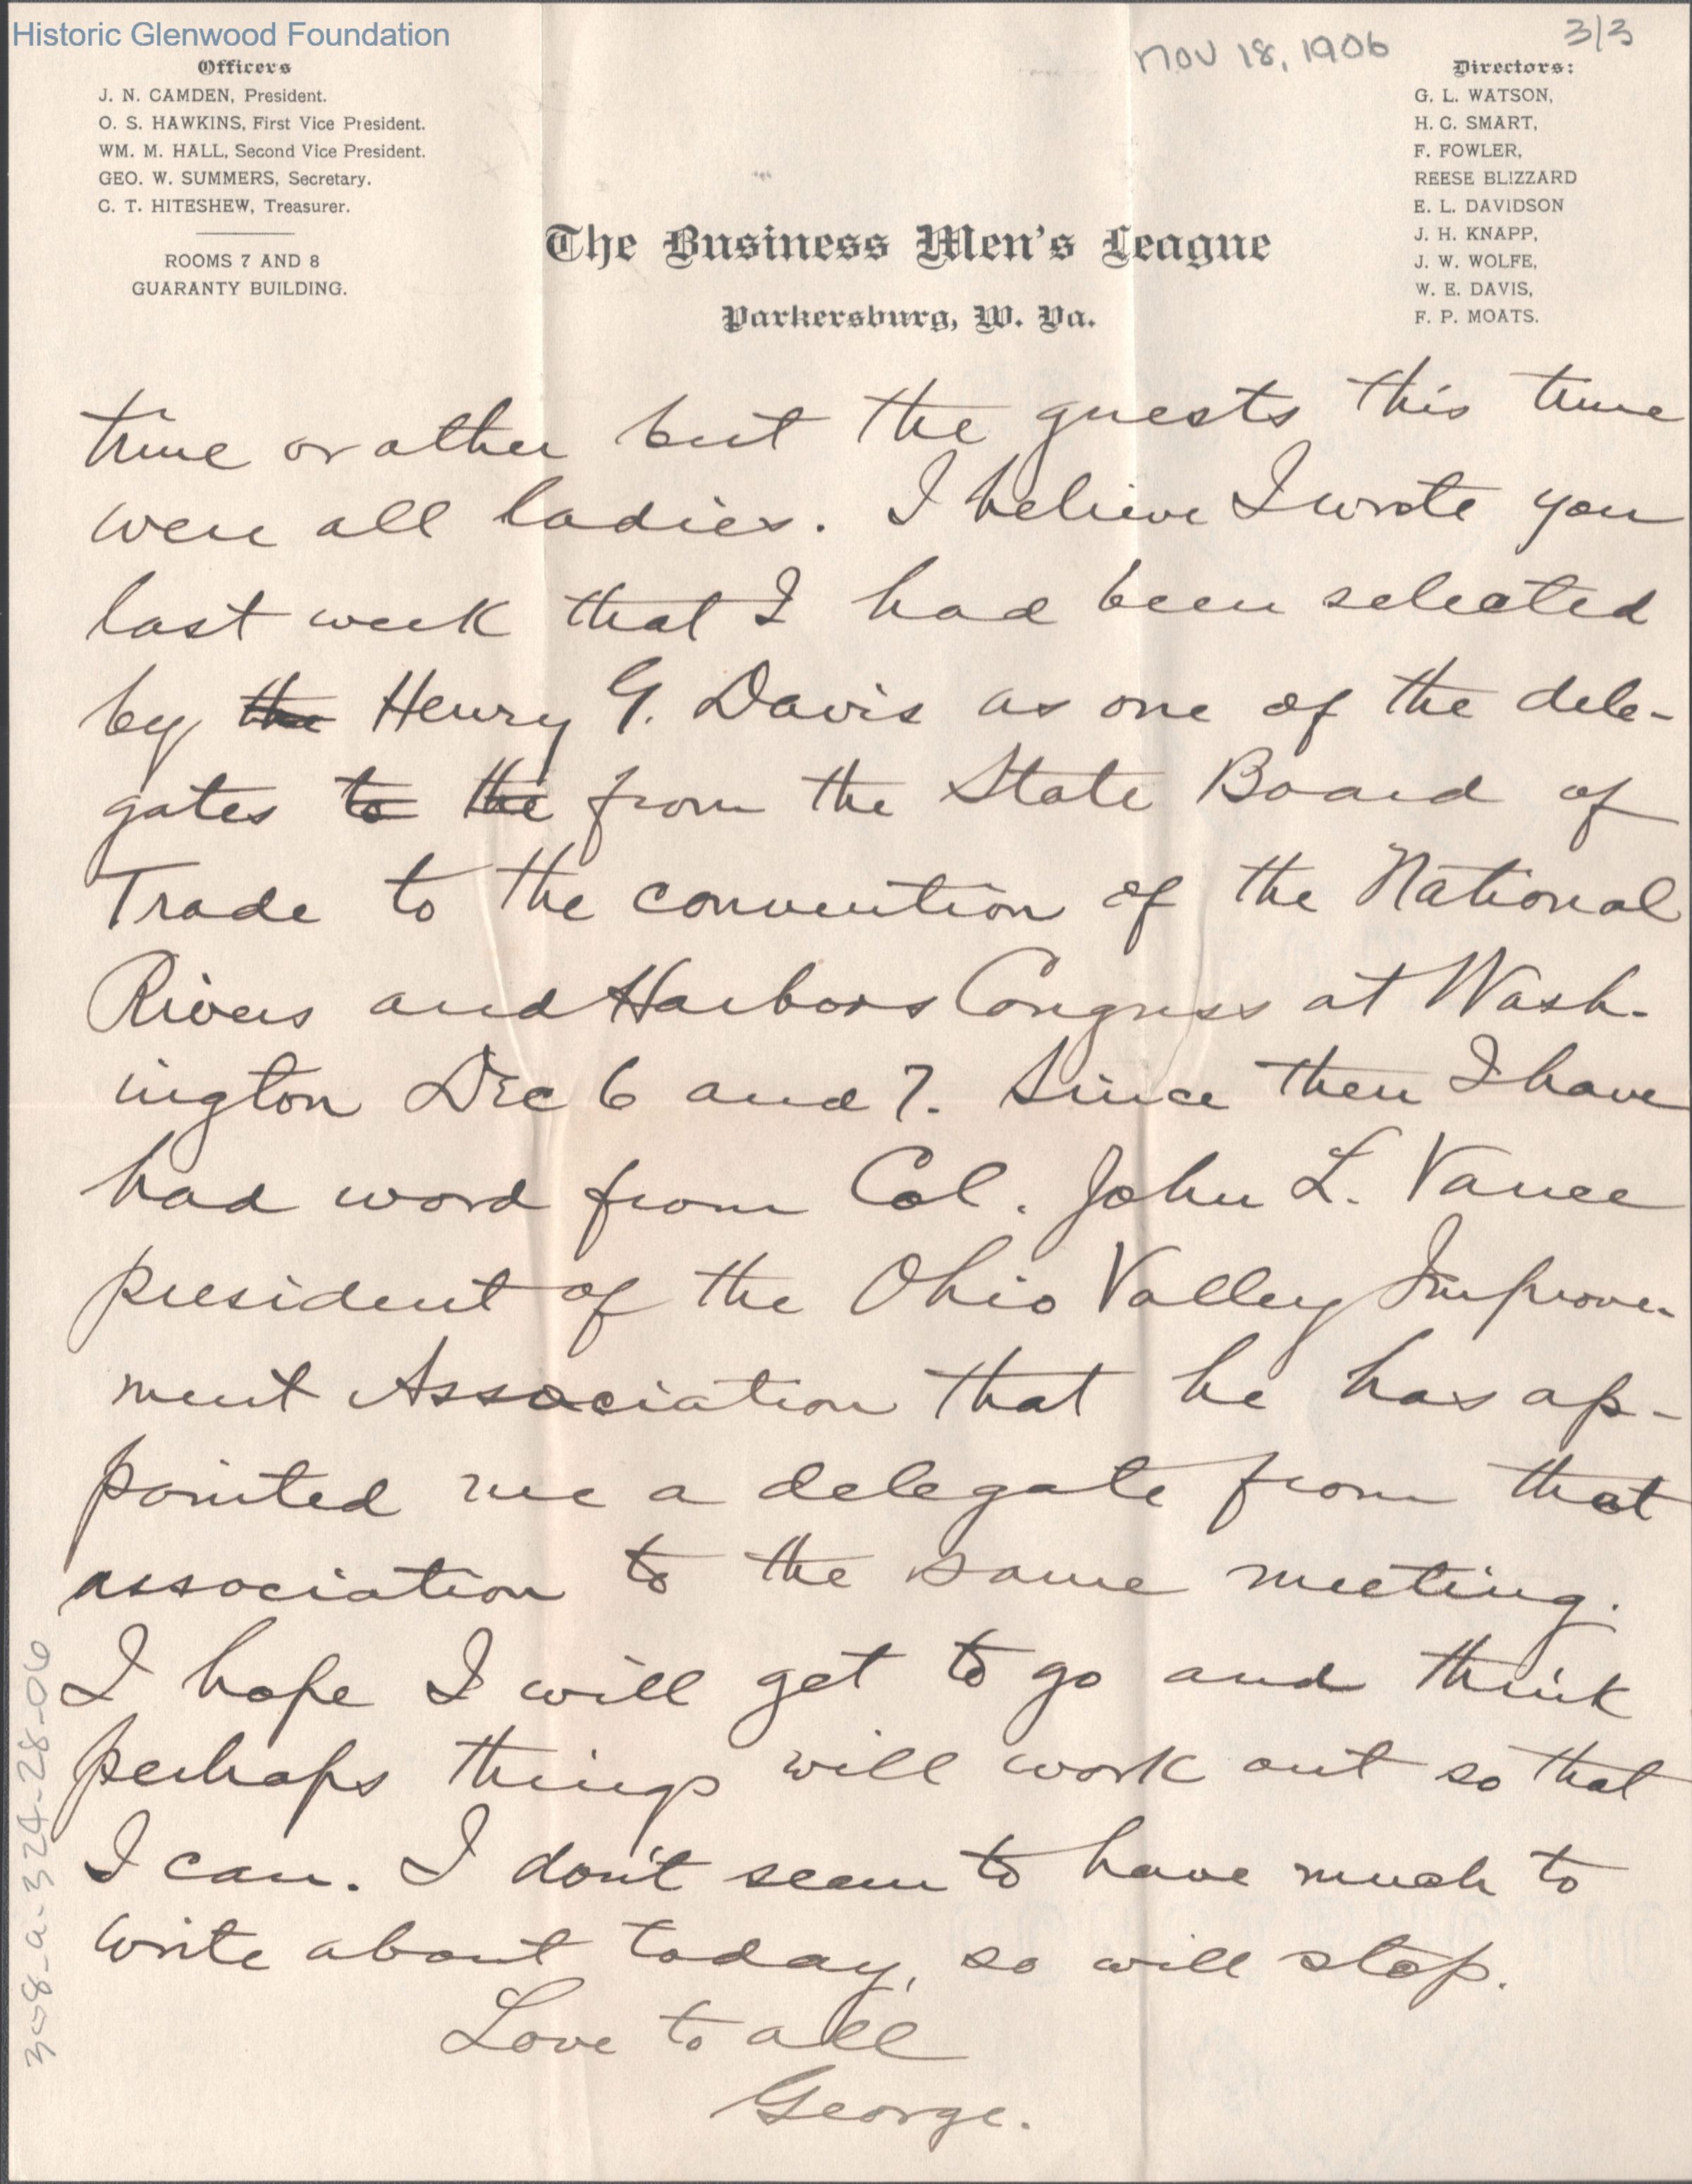 Historic Glenwood Foundation
Nov 18, 1906
3/3
Officers
J. N. CAMDEN, President.
O. S. HAWKINS, First Vice President.
WM. M. HALL, Second Vice President.
GEO. W. SUMMERS, Secretary.
C. T. HITESHEW, Treasurer.
ROOMS 7 AND 8
GUARANTY BUILDING.
Directors:
G. L. WATSON,
H. C. SMART,
F. FOWLER,
REESE BLIZZARD
E. L. DAVIDSON
J. H. KNAPP,
J. W. WOLFE,
W. E. DAVIS,
F. P. MOATS.
The Business Men's League
Parkersburg, W. Va.
time or other but the guests this time
were all ladies. I believe I wrote you
last week that I had been selected
by the Henry G. Davis as one of the dele-
gates to the from the State Board of
Trade to the convention of the National
Rivers and Harbors Congress at Wash-
ington Dec 6 and 7. Since then I have
had word from Col. John L. Vance
president of the Ohio Valley Improve-
ment Association that he has ap-
pointed me a delegate from that
association to the same meeting.
I hope I will get to go and think
perhaps things will work out so that
I can. I don't seem to have much to
write about today, so will stop.
Love to all
George.
308-a-324-28-06